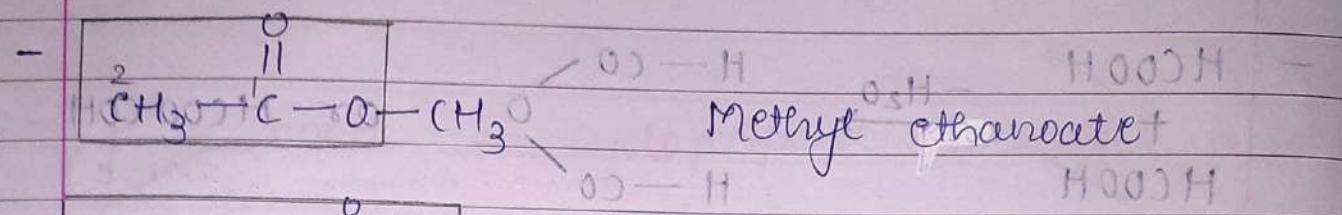 O
||
- ²CH₃ — ¹C — O — CH₃ Methyl ethanoate
O